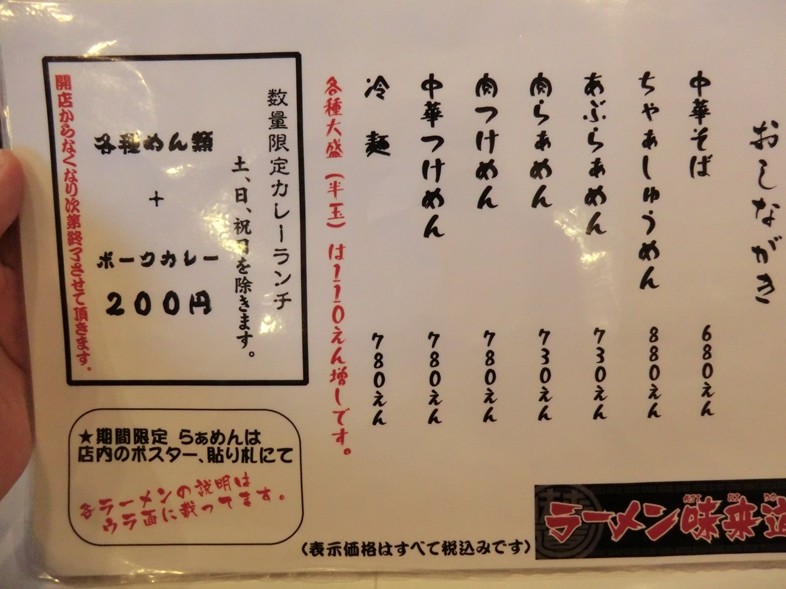 おしながき
中華そば 680えん
ちゃぁしゅうめん 880えん
あぶらぁめん 730えん
肉らぁめん 730えん
肉つけめん 780えん
中華つけめん 780えん
冷麺 780えん
各種大盛(半玉)は110えん増しです。
数量限定カレーランチ
土、日、祝日を除きます。
各種めん類
+
ポークカレー
200円
開店からなくなり次第終了させて頂きます。
★期間限定 らぁめんは
店内のポスター、貼り札にて
各ラーメンの説明は
ウラ面に載ってます。
(表示価格はすべて税込みです)
ラーメン味来道